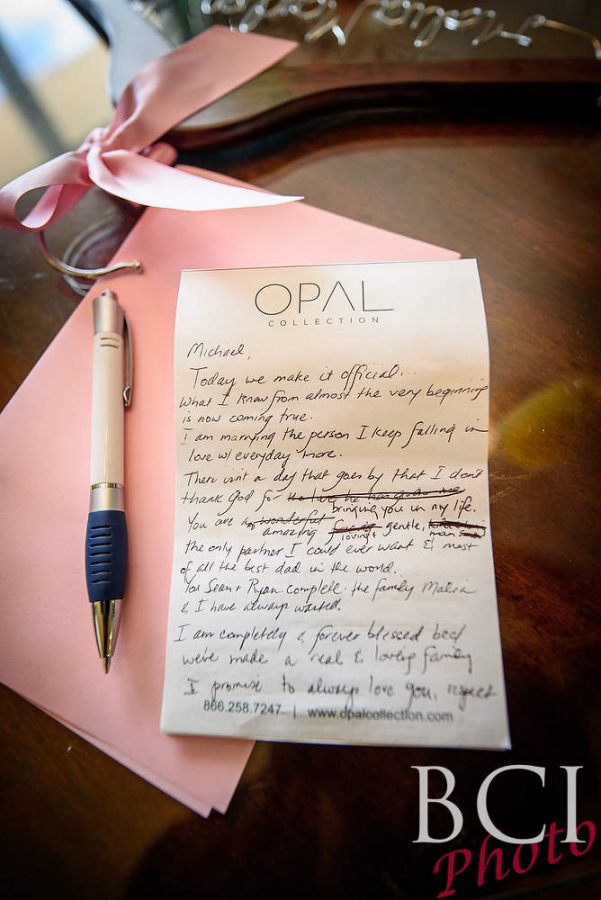 OPAL
COLLECTION
Michael,
Today we make it official...
What I know from almost the very beginning
is now coming true.
I am marrying the person I keep falling in
love w/ everyday more.
There isn't a day that goes by that I don't
thank God for
bringing you in my life.
You are a wonderful
amazing loving gentle, man
the only partner I could ever want & most
of all the best dad in the world.
You Sean + Ryan complete the family Malia
& I have always wanted.
I am completely & forever blessed
we've made a real & loving family
I promise to always love you, respect
866.258.7247 | www.opalcollection.com
BCI
Photo